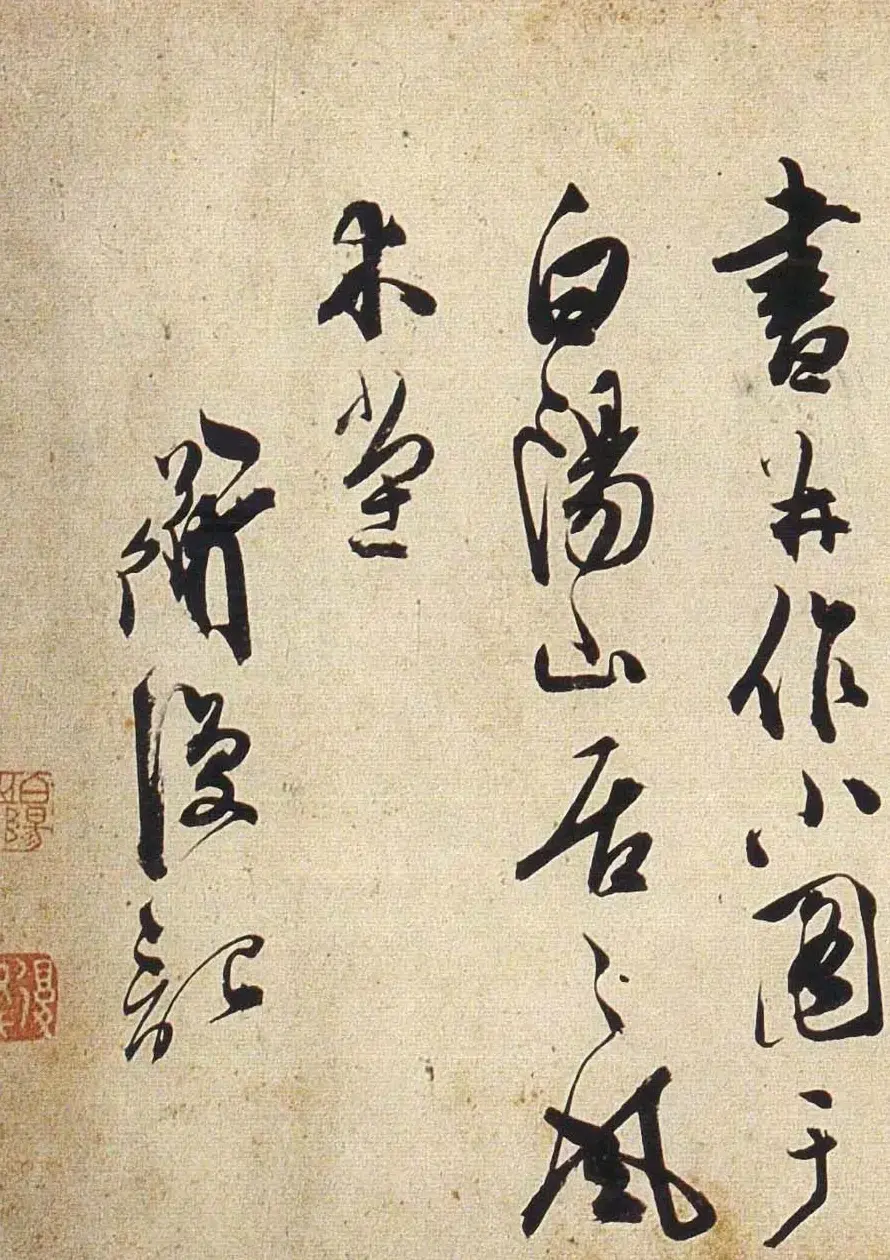 書并作小圖于
白陽山居之風
木堂
道復記
白陽
復